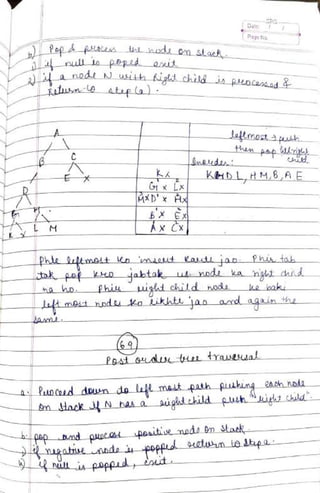 Date
Page No.
b) Pop & process the node on stack.
1) if null is poped exit
2) if a node N with Right child is processed &
Return to step (a).
leftmost push
then pop till right
child
Inorder:
A
B C
E X
D
G H
K X L M
K X
G X L X
A X C X
Phle leftmost ko insert karte jao. Phir tab
tak pop kro jabtak us node ka right child
na ho. Phir right child node ke baki
left most nodes ko likhte jao and again the
same.
69
Post order tree traversal
a. Proceed down do left most path pushing each node
on stack if N has a right child push right child.
b. pop and process positive node on stack
i) if negative node is popped return to step a.
ii) if null is popped, exit.